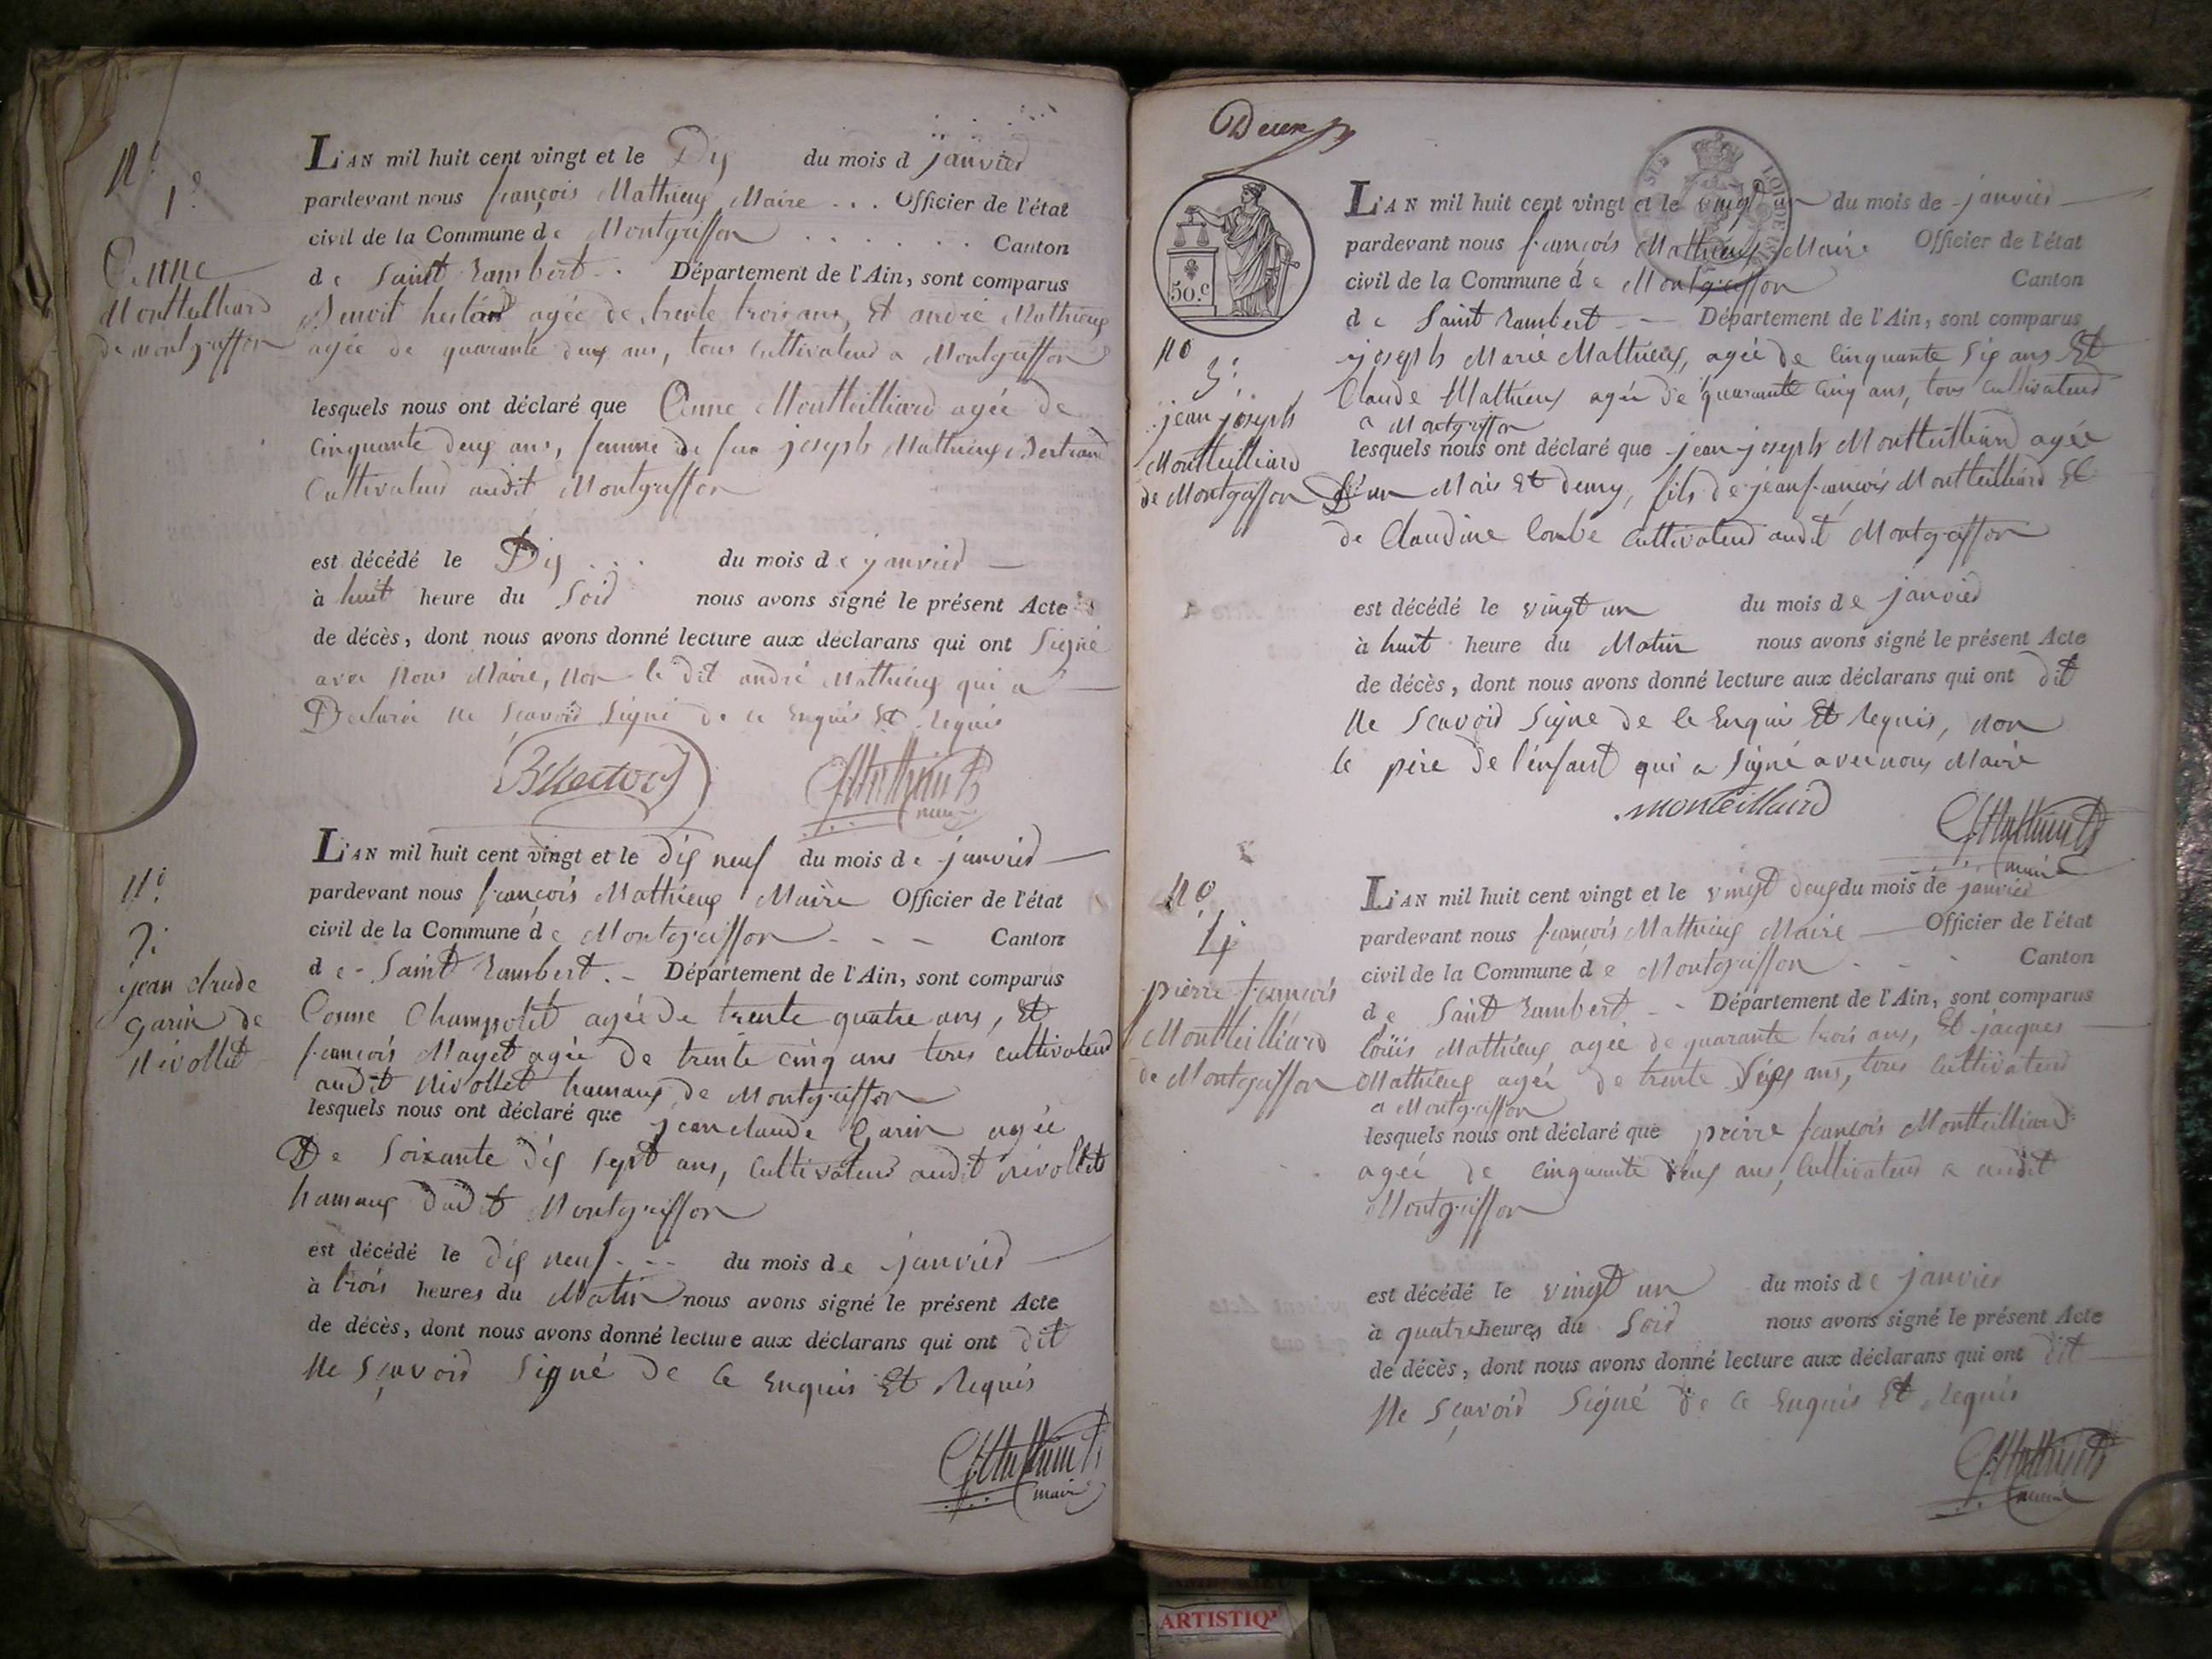 N.o
1.e
Anne
Montteilliard
de montgriffon
L'AN mil huit cent vingt et le Dix du mois d janvier
pardevant nous françois Mathieux Maire . . . Officier de l'état
civil de la Commune de Montgriffon . . . . . . . Canton
de Saint Rambert - . Département de l'Ain, sont comparus
Benoit agée de trente trois ans, Et andré Mathieux
agée de quarante deux ans, tous Cultivateurs a Montgriffon
lesquels nous ont déclaré que Anne Montteilliard agée de
Cinquante deux ans, femme de feu joseph Mathieux Bertrand
Cultivateur audit Montgriffon
est décédé le Dix . . . du mois de janvier —
à huit heure du Soir nous avons signé le présent Acte
de décès, dont nous avons donné lecture aux déclarans qui ont Signé
avec Nous Maire, Non le dit andré Mathieux qui a —
Déclaré Ne Scavoir Signé de ce Enquis Et Requis
Mathieux
maire
N.o
2.
jean claude
garin de
Nivollet
L'AN mil huit cent vingt et le dix neuf du mois de janvier —
pardevant nous françois Mathieux Maire Officier de l'état
civil de la Commune de Montgriffon - - - Canton
de - Saint Rambert . - Département de l'Ain, sont comparus
Cosme Champolet agée de trente quatre ans, Et
françois Mayet agée de trente cinq ans tous cultivateurs
audit Nivollet hamaux de Montgriffon
lesquels nous ont déclaré que jean claude Garin agée
De Soixante dix sept ans, Cultivateur audit nivollet
hamaux dudit Montgriffon
est décédé le dix neuf - - - du mois de janvier —
à trois heures du Matin nous avons signé le présent Acte
de décès, dont nous avons donné lecture aux déclarans qui ont dit
Ne Sçavoir Signé de Ce Enquis Et Requis
Mathieux
maire
Deux
50.c
N.o
3.
jean joseph
Montteilliard
de Montgriffon
L'AN mil huit cent vingt et le vingt un du mois de janvier —
pardevant nous françois Mathieux Maire Officier de l'état
civil de la Commune de Montgriffon Canton
de Saint Rambert - - Département de l'Ain, sont comparus
joseph Marie Mathieux, agée de Cinquante Six ans Et
Claude Mathieux agée de quarante Cinq ans, tous Cultivateurs
a Montgriffon
lesquels nous ont déclaré que jean joseph Montteilliard agée
D'un Mois Et demy, fils de jean françois Montteilliard Et
de Claudine Combe Cultivateur audit Montgriffon
est décédé le vingt un du mois de janvier
à huit heure du Matin nous avons signé le présent Acte
de décès, dont nous avons donné lecture aux déclarans qui ont dit
Ne Scavoir Signe de Ce Enquis Et Requis, non
le père de l'enfant qui a Signé avec nous Maire
monteillaird
Mathieux
maire
N.o
4
pierre françois
Montteilliard
de Montgriffon
L'AN mil huit cent vingt et le vingt deux du mois de janvier
pardevant nous françois Mathieux Maire — Officier de l'état
civil de la Commune de Montgriffon - - - Canton
de Saint Rambert - - Département de l'Ain, sont comparus
loüis Mathieux agée de quarante trois ans, Et jacques
Mathieux agée de trente Six ans, tous Cultivateurs
a Montgriffon
lesquels nous ont déclaré que pierre françois Montteilliard
agée de Cinquante deux ans, Cultivateur a audit
Montgriffon
est décédé le vingt un du mois de janvier
à quatre heures du Soir nous avons signé le présent Acte
de décès, dont nous avons donné lecture aux déclarans qui ont dit —
Ne Sçavoir Signé de Ce Enquis Et Requis
Mathieux
maire
ARTISTIQ